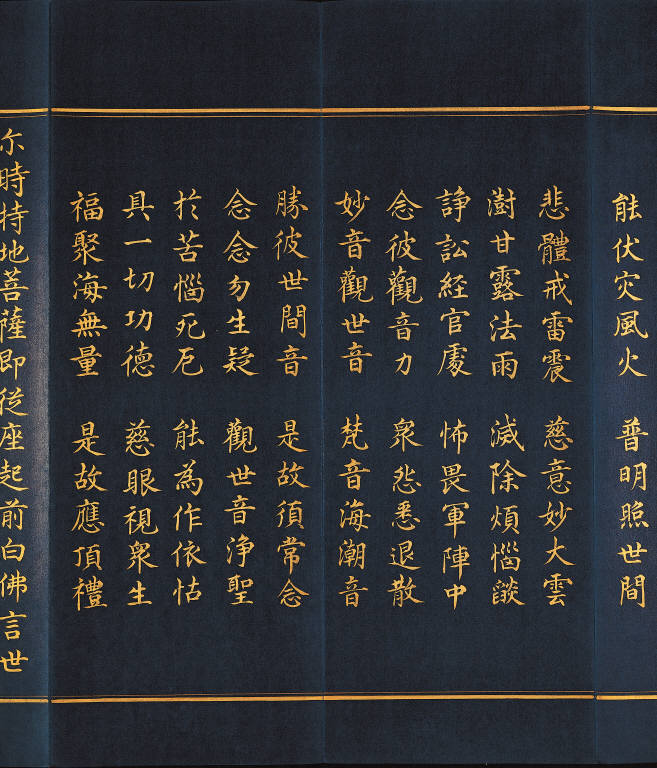 能伏灾風火 普明照世間
悲體戒雷震 慈意妙大雲
澍甘露法雨 滅除煩惱燄
諍訟経官處 怖畏軍陣中
念彼觀音力 衆怨悉退散
妙音觀世音 梵音海潮音
勝彼世間音 是故須常念
念念勿生疑 觀世音淨聖
於苦惱死厄 能為作依怙
具一切功德 慈眼視衆生
福聚海無量 是故應頂禮
尒時持地菩薩即從座起前白佛言世